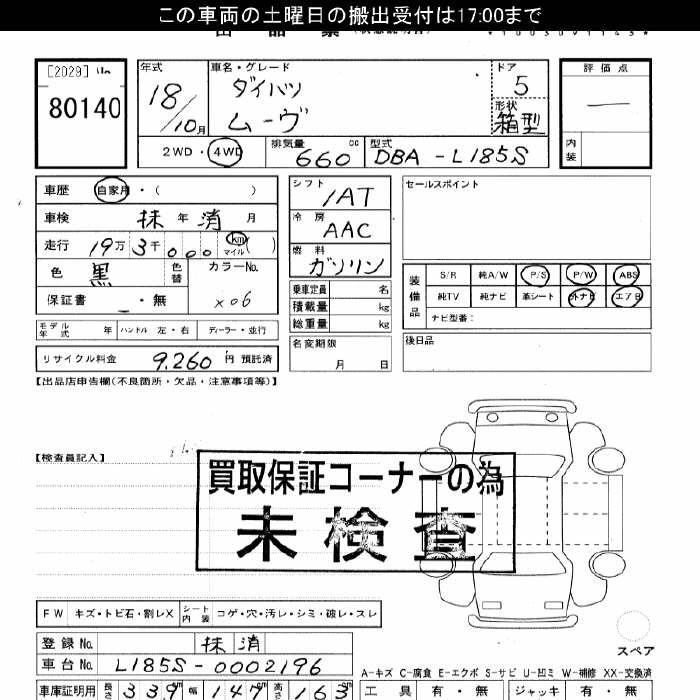 この車両の土曜日の搬出受付は17:00まで
[2029]
80140
年式 18/10月
車名・グレード ダイハツ ムーヴ
ドア 5
形状 箱型
評価点 ―
内装
2WD・4WD
排気量 660 cc
型式 DBA-L185S
車歴 自家用・( )
車検 抹 年 消 月
走行 19万3千000 km マイル ( )
色 黒 色替 カラーNo. X06
保証書 ・無
シフト IAT
冷房 AAC
燃料 ガソリン
乗車定員 名
積載量 kg
総重量 kg
名変期限 月 日
セールスポイント
装備品 S/R 純A/W P/S P/W ABS
純TV 純ナビ 革シート 外ナビ エアB
ナビ型番:
後日品
モデル年式 年 ハンドル 左・右 ディーラー・並行
リサイクル料金 9,260 円 預託済
【出品店申告欄(不良箇所・欠品・注意事項等)】
【検査員記入】
買取保証コーナーの為
未検査
FW キズ・トビ石・割レX シート内装 コゲ・穴・汚レ・シミ・破レ・スレ
スペア
登録No. 抹消
車台No. L185S-0002196
A-キズ C-腐食 E-エクボ S-サビ U-凹ミ W-補修 XX-交換済
車庫証明用 長さ 339 cm 幅 147 cm 高さ 163
工具 有・無 ジャッキ 有・無